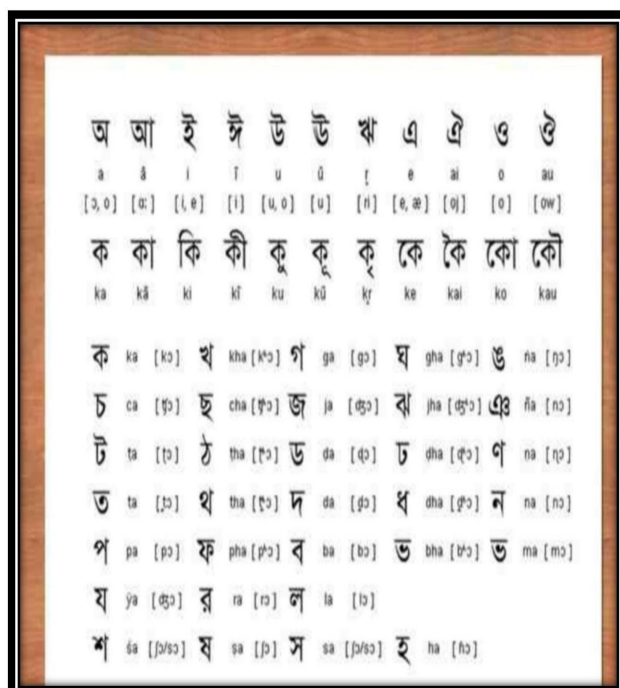 অ আ ই ঈ উ ঊ ঋ এ ঐ ও ঔ
a ā i ī u ū ṛ e ai o au
[ɔ, o] [ɑː] [i, e] [i] [u, o] [u] [ri] [e, æ] [oj] [o] [ow]
ক কা কি কী কু কূ কৃ কে কৈ কো কৌ
ka kā ki kī ku kū kṛ ke kai ko kau
ক ka [kɔ] খ kha [kʰɔ] গ ga [gɔ] ঘ gha [gʱɔ] ঙ ṅa [ŋɔ]
চ ca [ʧɔ] ছ cha [ʧʰɔ] জ ja [ʤɔ] ঝ jha [ʤʱɔ] ঞ ña [nɔ]
ট ṭa [ʈɔ] ঠ ṭha [ʈʰɔ] ড ḍa [ɖɔ] ঢ ḍha [ɖʱɔ] ণ ṇa [ɳɔ]
ত ta [t̪ɔ] থ tha [t̪ʰɔ] দ da [d̪ɔ] ধ dha [d̪ʱɔ] ন na [nɔ]
প pa [pɔ] ফ pha [pʰɔ] ব ba [bɔ] ভ bha [bʱɔ] ভ ma [mɔ]
য ẏa [ʤɔ] র ra [rɔ] ল la [lɔ]
শ śa [ʃɔ/sɔ] ষ ṣa [ʃɔ] স sa [ʃɔ/sɔ] হ ha [ɦɔ]